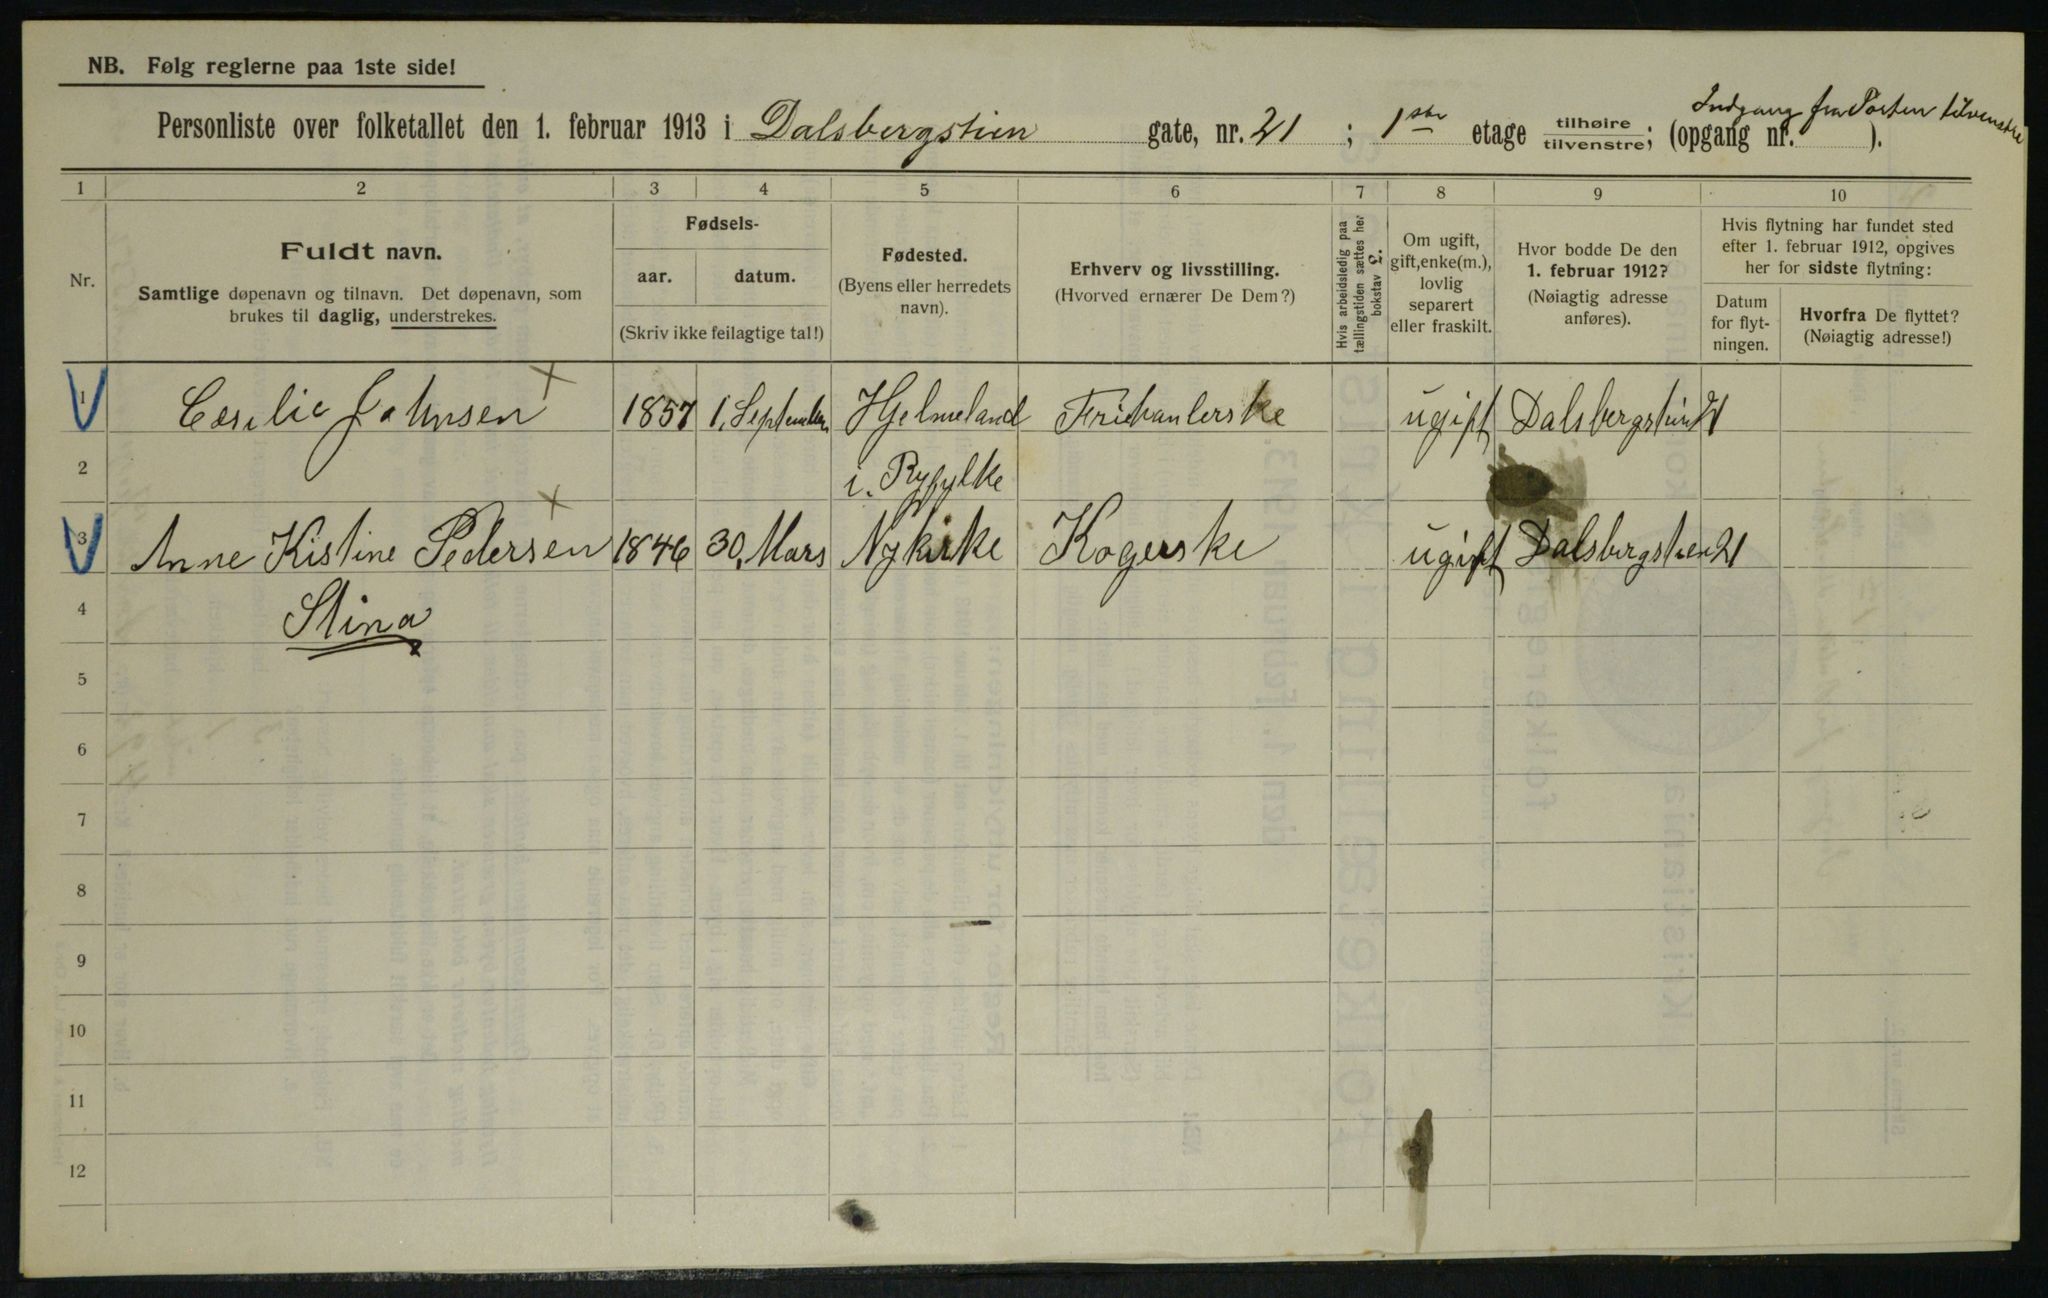 NB. Følg reglerne paa 1ste side!
Indgang fra Porten tilvenstre
Personliste over folketallet den 1. februar 1913 i Dalsbergstien gate, nr. 21 ; 1ste etage tilhøire tilvenstre; (opgang nr. ).
1 2 3 4 5 6 7 8 9 10
Nr.
Fuldt navn.
Samtlige døpenavn og tilnavn. Det døpenavn, som
brukes til daglig, understrekes.
Fødsels-
aar. datum.
(Skriv ikke feilagtige tal!)
Fødested.
(Byens eller herredets
navn).
Erhverv og livsstilling.
(Hvorved ernærer De Dem?)
Hvis arbeidsledig paa
tællingstiden sættes her
bokstav L.
Om ugift,
gift, enke(m.),
lovlig
separert
eller fraskilt.
Hvor bodde De den
1. februar 1912?
(Nøiagtig adresse
anføres).
Hvis flytning har fundet sted
efter 1. februar 1912, opgives
her for sidste flytning:
Datum
for flyt-
ningen.
Hvorfra De flyttet?
(Nøiagtig adresse!)
1 Cesilie Johnsen 1857 1. September Hjelmeland Frihanlerske ugift Dalsbergstien 21
2 i. Ryfylke
3 Anne Kistine Pedersen 1846 30. Mars Nykirke Kogerske ugift Dalsbergstien 21
4 Stina
5
6
7
8
9
10
11
12